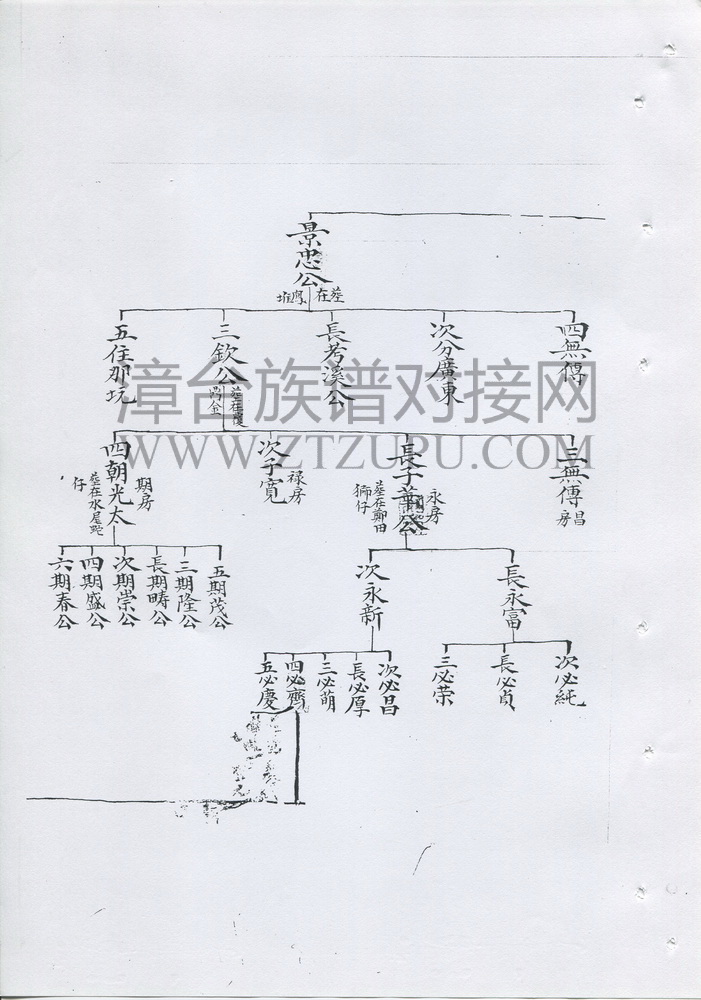 景忠公
葬在
五住那坑
三欽公
葬在
長考溪公
次分廣東
四無傳
漳台族谱对接网
WWW.ZTZUPU.COM
四朝光太
期房
葬在水尾
仔
次子寬
禄房
長子
公
永房
葬在鄭田
獅仔
三無傳
昌房
六期春公
四期盛公
次期崇公
長期疇公
三期隆公
五期茂公
次永新
長永富
五必慶
四必齊
三必萌
長必厚
次必昌
三必荣
長必貞
次必純